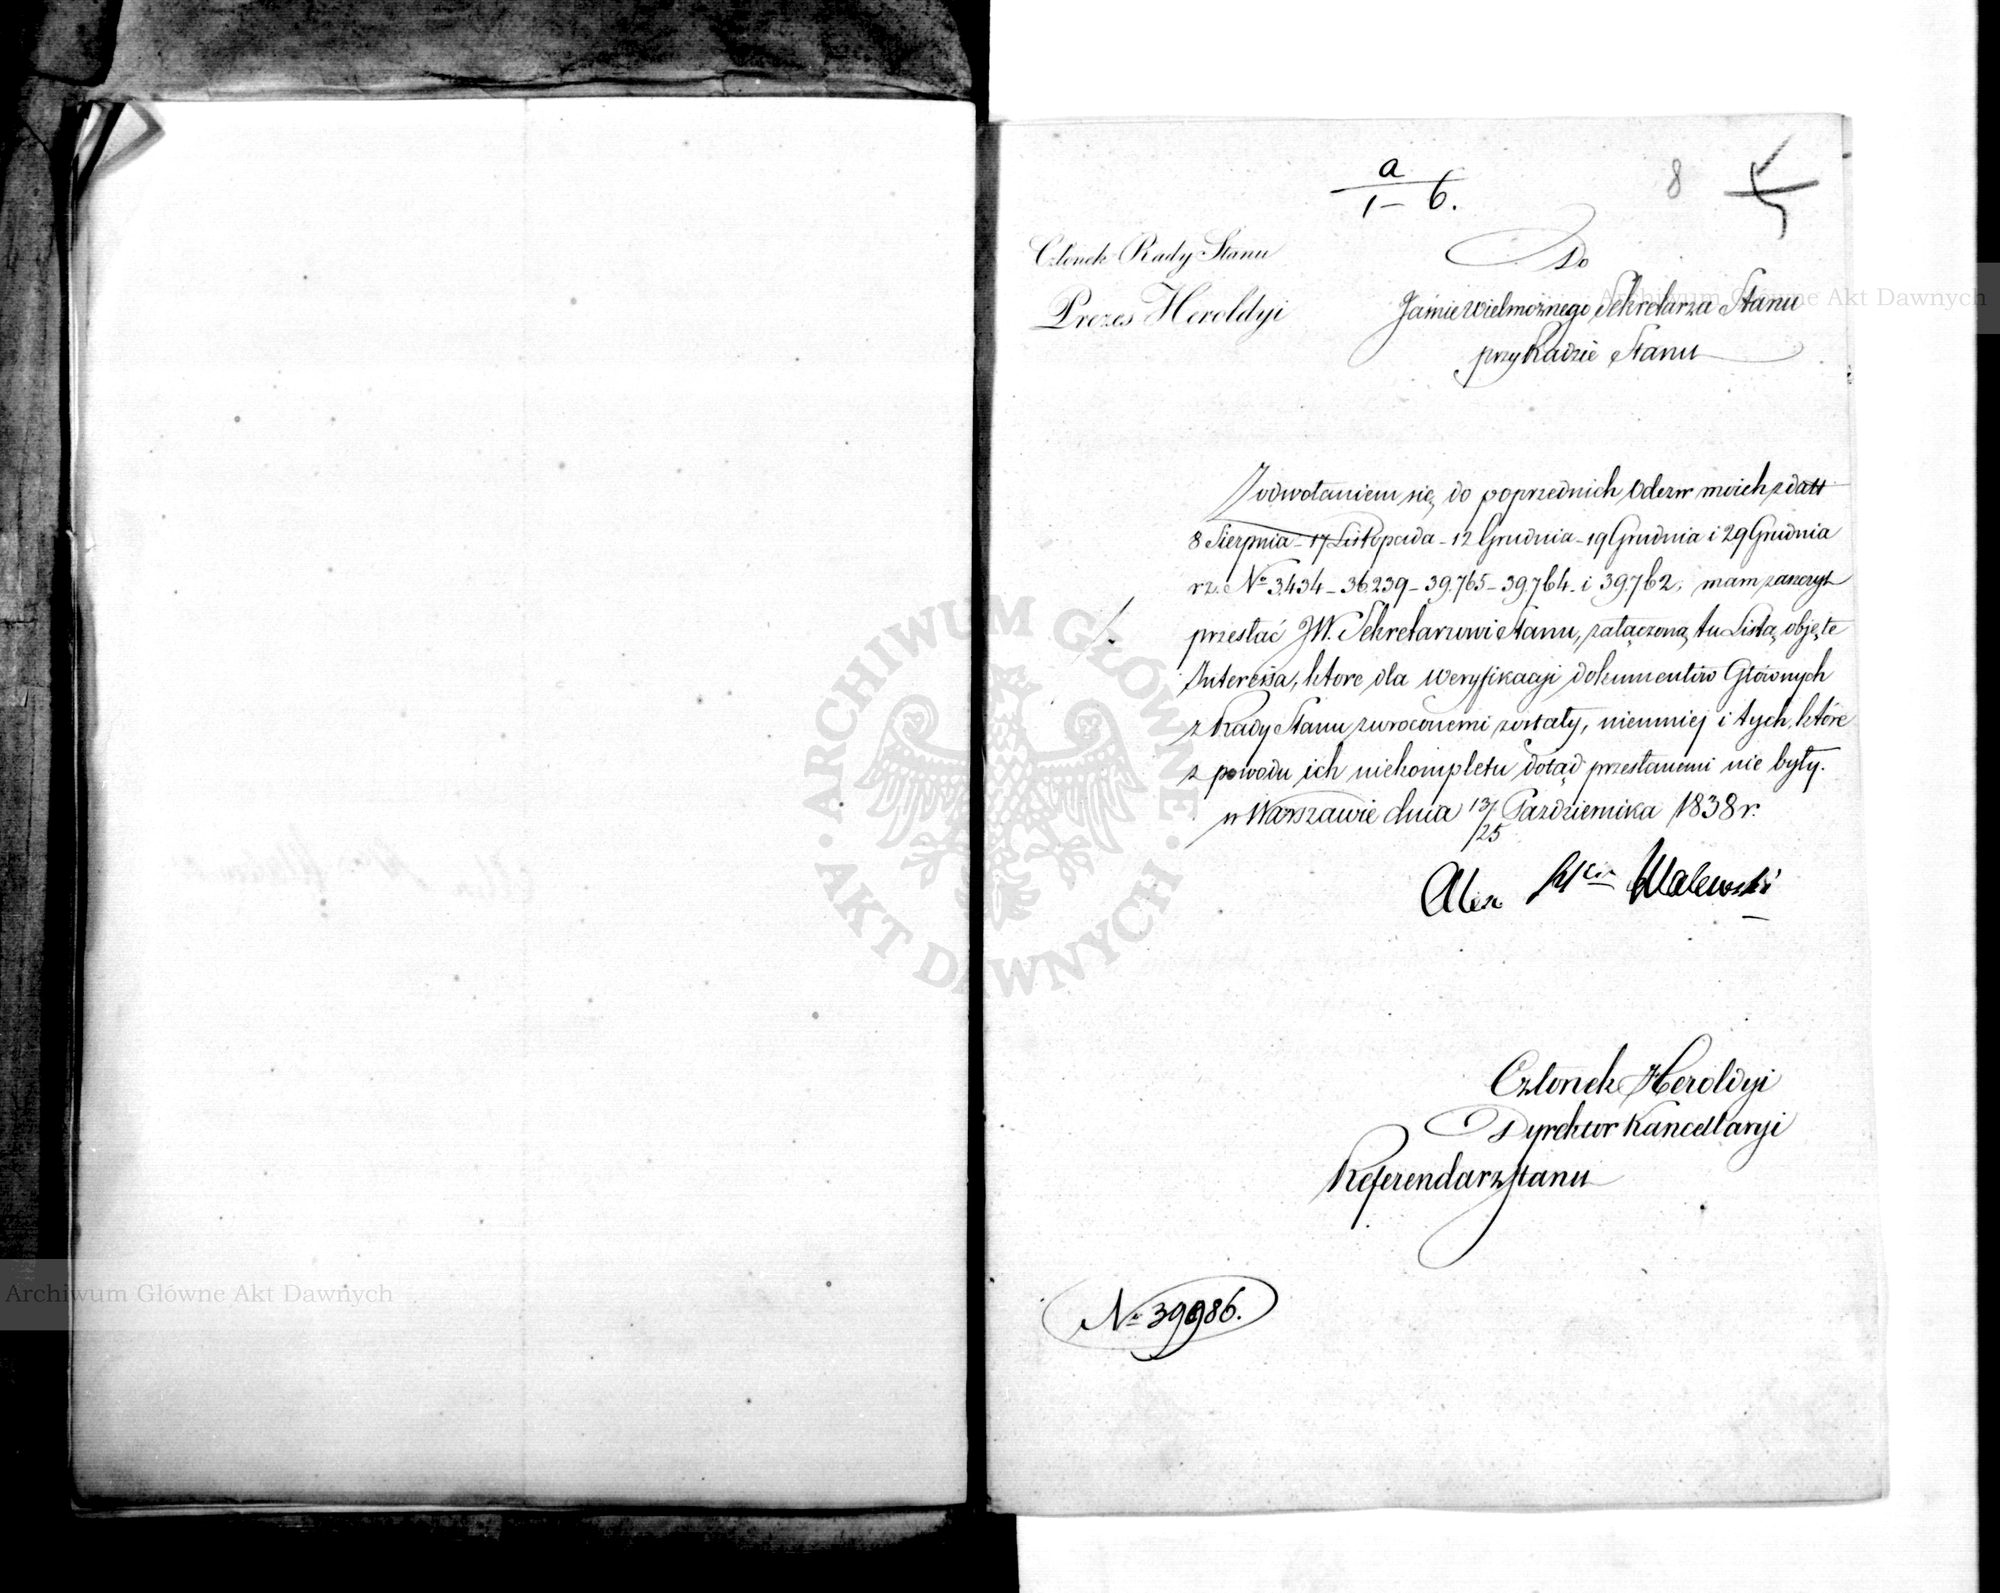 a
1 – 6.
8
Członek Rady Stanu
Prezes Heroldyi
Do
Jaśnie Wielmożnego Sekretarza Stanu
przy Radzie Stanu
Z odwołaniem się do poprzednich Odezw moich z datt
8 Sierpnia – 17 Listopada – 12 Grudnia – 19 Grudnia i 29 Grudnia
rz. No 3,434 – 36.239 – 39.765 – 39.764. i 39.762, mam zaszczyt
przesłać JW. Sekretarzowi Stanu, załączoną tu Listą objęte
Interessa, ktore dla Weryfikacyi dokumentów Głównych
z Rady Stanu zwroconemi zostały, niemniej i tych, które
z powodu ich niekompletu dotąd przesłanemi nie były.
w Warszawie dnia 13/25 Października 1838 r.
Alex Walewski
Członek Heroldyi
Dyrektor Kancellaryi
Referendarz Stanu
No 39986.
ARCHIWUM GŁÓWNE · AKT DAWNYCH ·
Archiwum Główne Akt Dawnych
Archiwum Główne Akt Dawnych